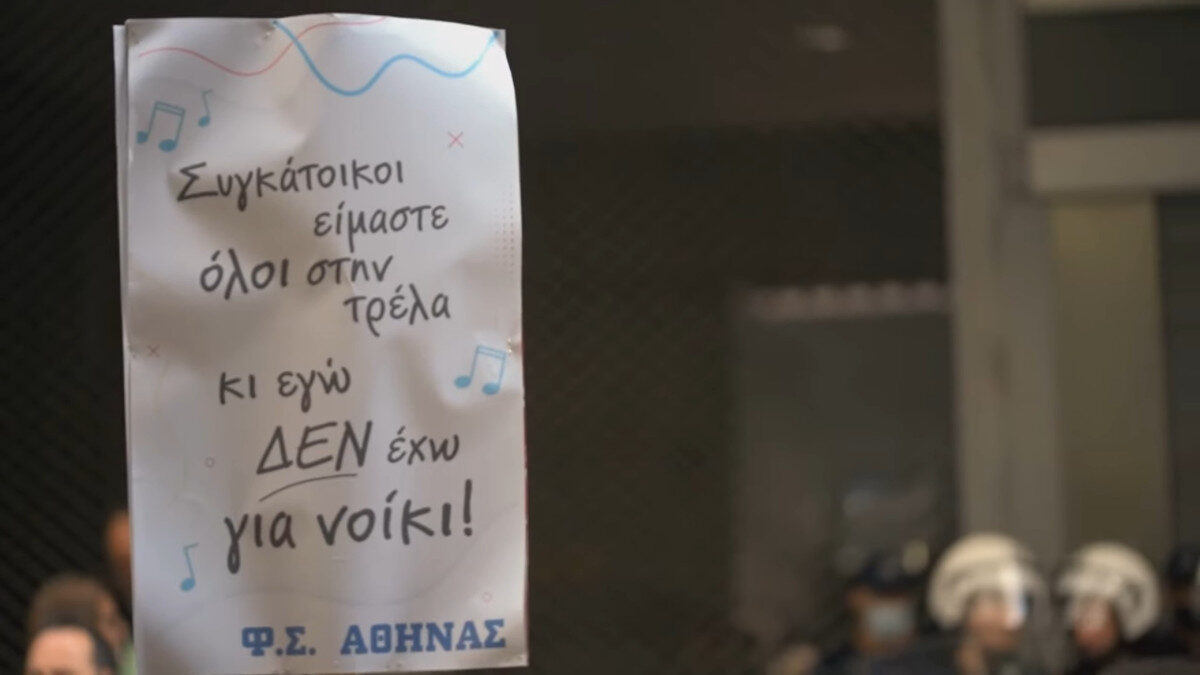 Συγκάτοικοι
είμαστε
όλοι στην
τρέλα
κι εγώ
ΔΕΝ έχω
για νοίκι!
Φ.Σ. ΑΘΗΝΑΣ